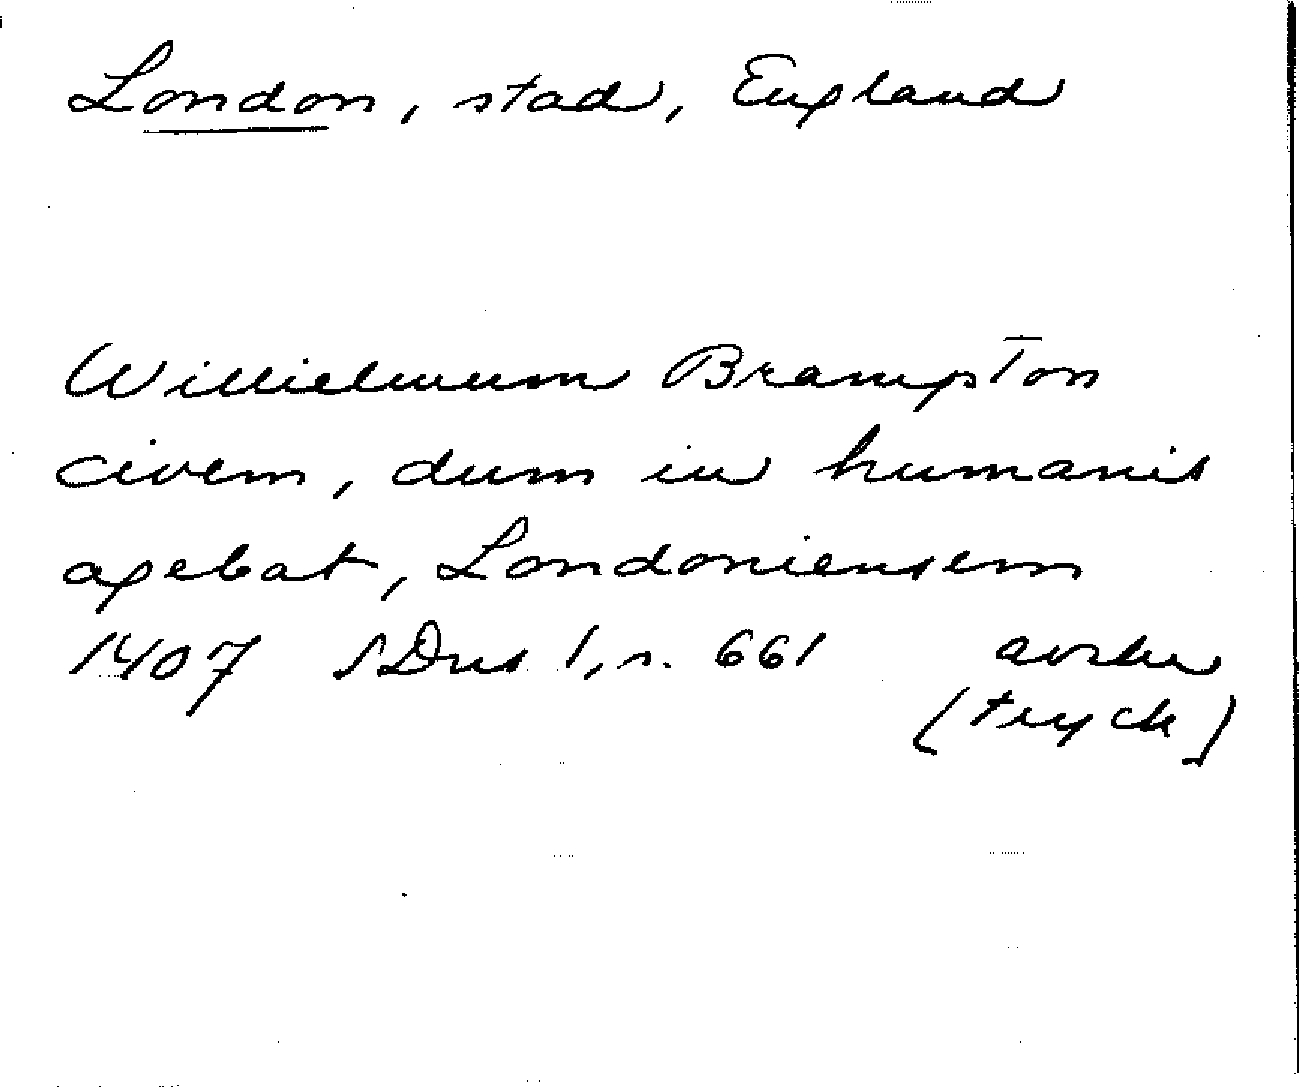 London, stad, England
Willielmum Brampton
civem, dum in humanis
agebat, Londoniensem
1407 SDns 1, s. 661 avskr
(tryck)